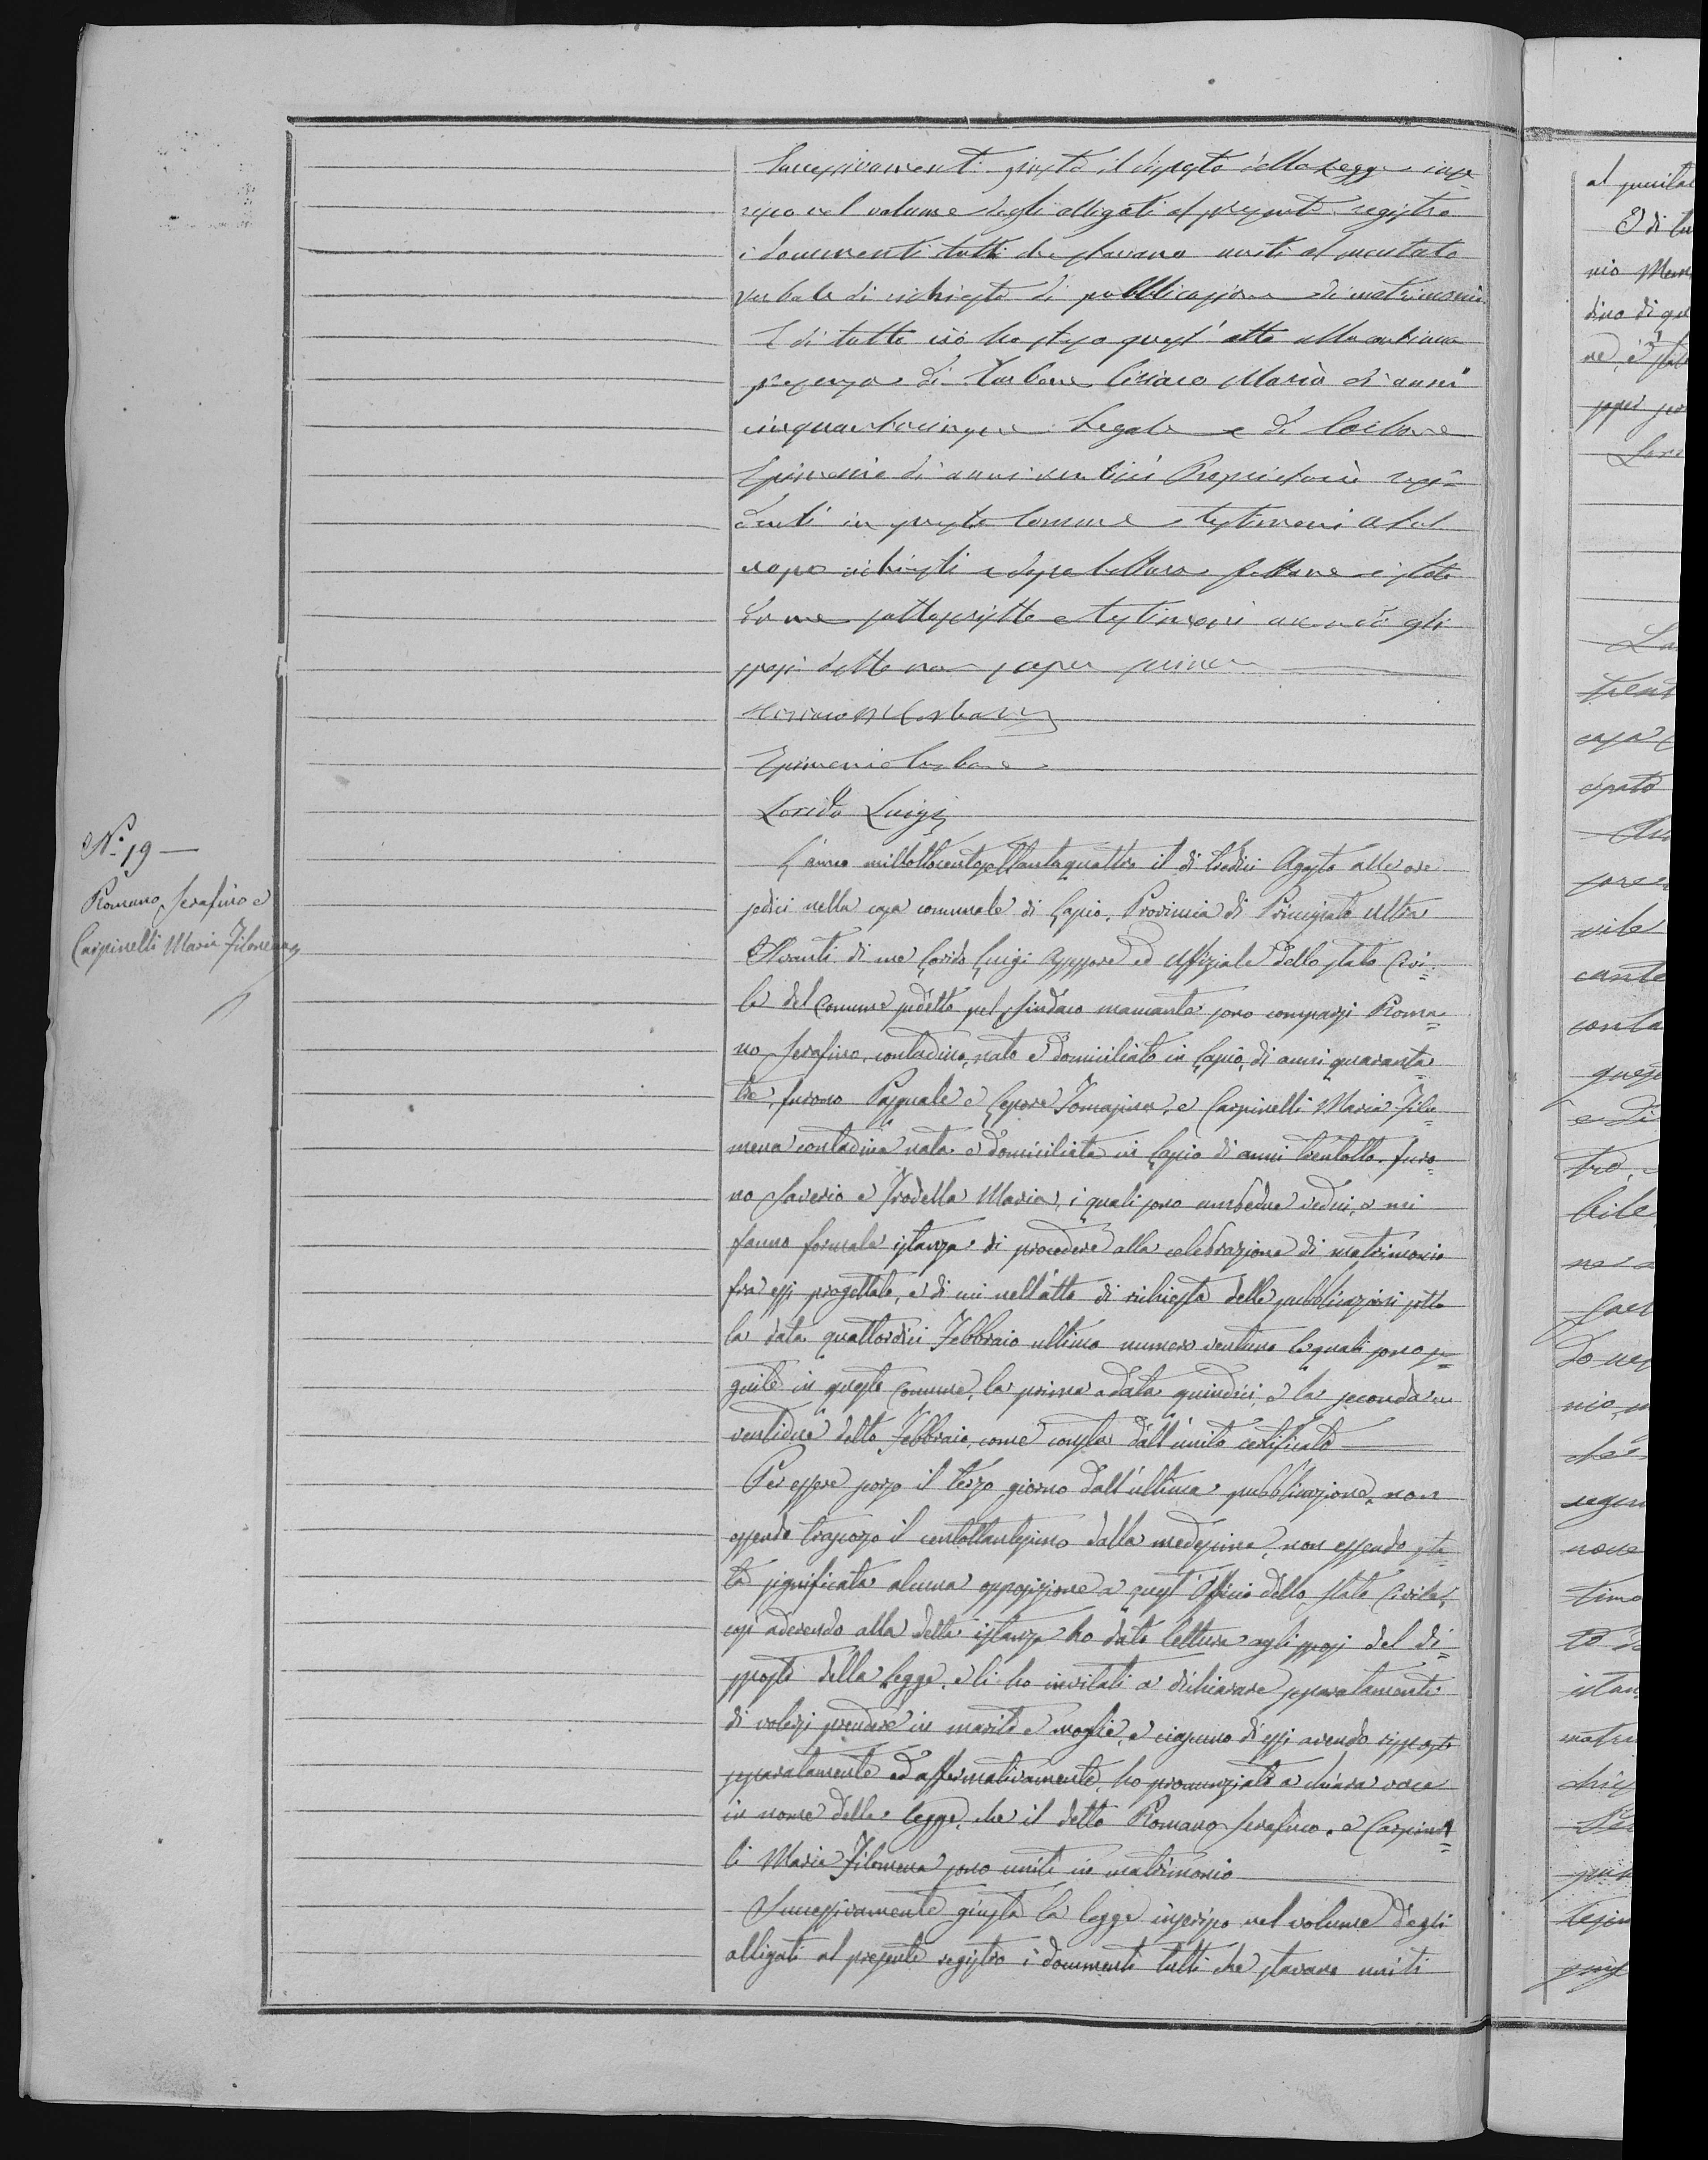 Successivamente giusta il disposto della Legge inse=
risco nel volume degli alligati al presente registro
i documenti tutti che stavano uniti al mentato
verbale di richiesta di pubblicazione di matrimonio
E di tutto ciò ho steso quest'atto alla continua
presenza di Carbone Ciriaco Maria di anni
cinquantacinque Legale e di Carbone
Epimenio di anni ventisei Proprietarii resi=
denti in questo Comune testimoni a tal
uopo richiesti e dopo lettura fattane è stato
da me sottoscritto e testimoni avendo gli
sposi detto non saper scrivere
Ciriaco M. Carbone
Epimenio Carbone
Lorido Luigi
N.° 19
Romano Serafino e
Carpinelli Maria Filomena
L'anno milleottocentosettantaquattro il dì tredici Agosto alle ore
sedici nella casa comunale di Lapio, Provincia di Principato Ultra
Avanti di me Lorido Luigi Assessore ed Uffiziale dello stato Civi=
le del Comune sudetto pel Sindaco mancante sono comparsi Roma=
no Serafino, contadino, nato e domiciliato in Lapio, di anni quaranta=
tre, furono Pasquale e Lepore Tomasina, e Carpinelli Maria Filo=
mena contadina nata e domiciliata in Lapio di anni trentotto, furo=
no Saverio e Trodella Maria, i quali sono ambedue vedovi, e mi
fanno formale istanza di procedere alla celebrazione di matrimonio
fra essi progettato, e di cui nell'atto di richiesta delle pubblicazioni sotto
la data quattordici Febbraio ultimo numero ventuno le quali sono se=
guite in questo Comune, la prima a data quindici, e la seconda a
ventidue detto Febbraio, come consta dall'unito certificato
Per essere scorso il terzo giorno dall'ultima pubblicazione, non
essendo trascorso il centottantesimo dalla medesima, non essendo sta=
ta significata alcuna opposizione a quest'Officio dello Stato Civile,
così aderendo alla detta istanza ho dato lettura agli sposi del di=
sposto della Legge, e li ho invitati a dichiarare separatamente
di volersi prendere in marito e moglie, e ciascuno di essi avendo risposto
separatamente ed affermativamente, ho pronunziato a chiara voce
in nome della legge, che il detto Romano Serafino, e Carpinel=
li Maria Filomena sono uniti in matrimonio
Successivamente giusta la legge inserisco nel volume degli
alligati al presente registro i documenti tutti che stavano uniti